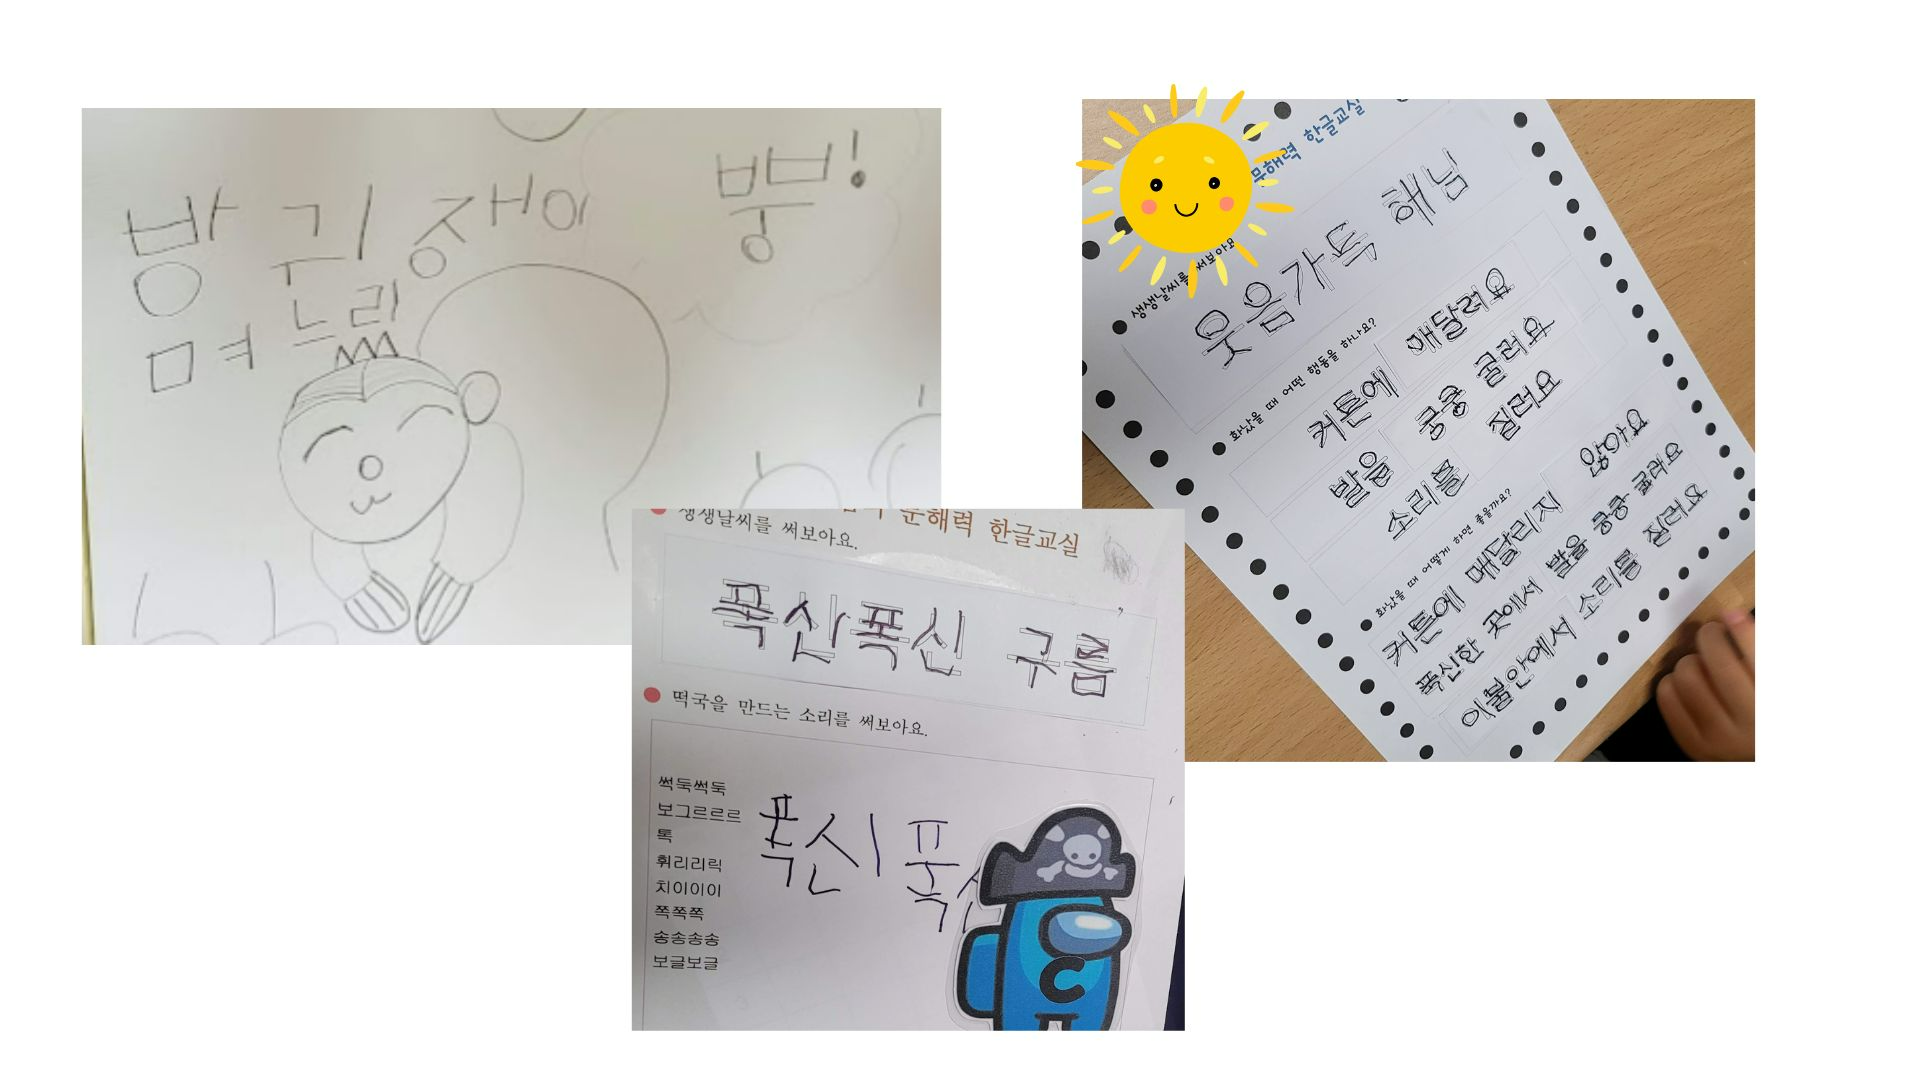 방귀쟁이
며느리
뿡!
문해력 한글교실
생생날씨를 써보아요
웃음가득 해님
화났을 때 어떤 행동을 하나요?
커튼에 매달려요
발을 쿵쿵 굴려요
소리를 질러요
화났을 때 어떻게 하면 좋을까요?
커튼에 매달리지 않아요
푹신한 곳에서 발을 쿵쿵 굴려요
이불안에서 소리를 질러요
문해력 한글교실
생생날씨를 써보아요.
폭신폭신 구름
떡국을 만드는 소리를 써보아요.
썩둑썩둑
보그르르르
톡
휘리리릭
치이이이
쪽쪽쪽
송송송송
보글보글
폭신
C